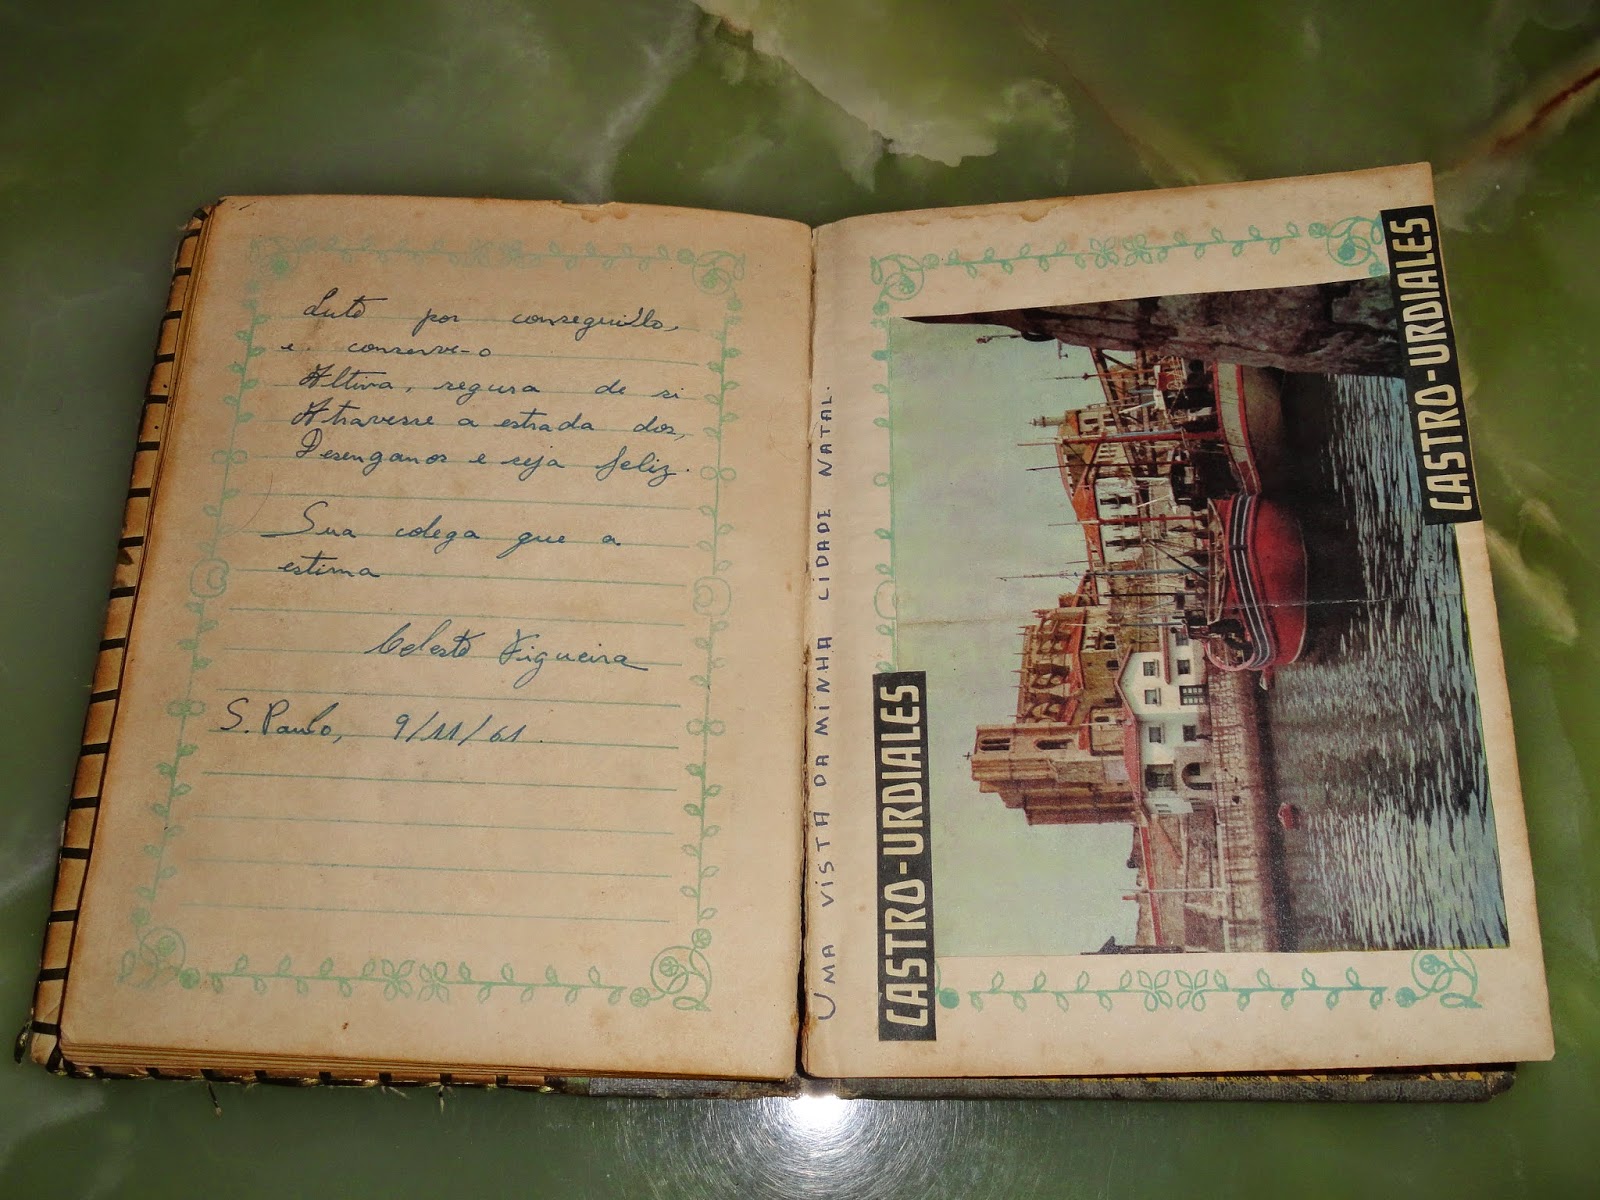 Lute por consegui-lo,
e conserve-o
Altiva, segura de si
Atravesse a estrada dos,
Desenganos e seja feliz.
Sua colega que a
estima
Celeste Figueira
S. Paulo, 9/11/61.
UMA VISTA DA MINHA CIDADE NATAL.
CASTRO-URDIALES
CASTRO-URDIALES